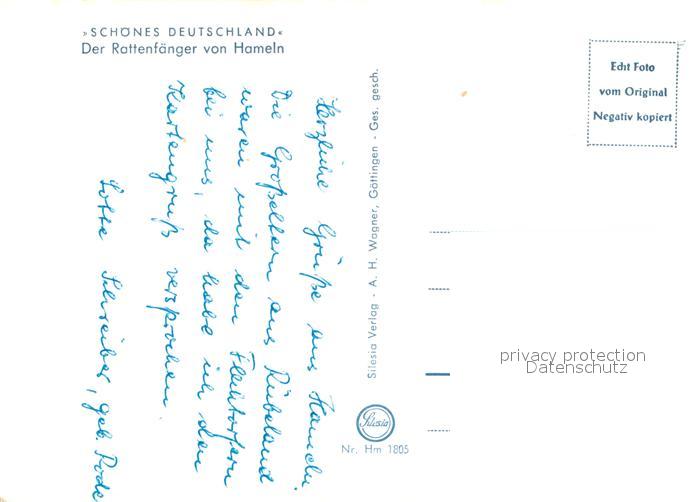 »SCHÖNES DEUTSCHLAND«
Der Rattenfänger von Hameln
Herzliche Grüße aus Hameln.
Die Großeltern aus Rübeland
waren mit den
bei uns, da habe ich den
Kartengruß versprochen
Lotte Schreiber, geb. Rode
Silesia Verlag - A. H. Wagner, Göttingen - Ges. gesch.
Echt Foto
vom Original
Negativ kopiert
privacy protection
Datenschutz
Silesia
Nr. Hm 1805